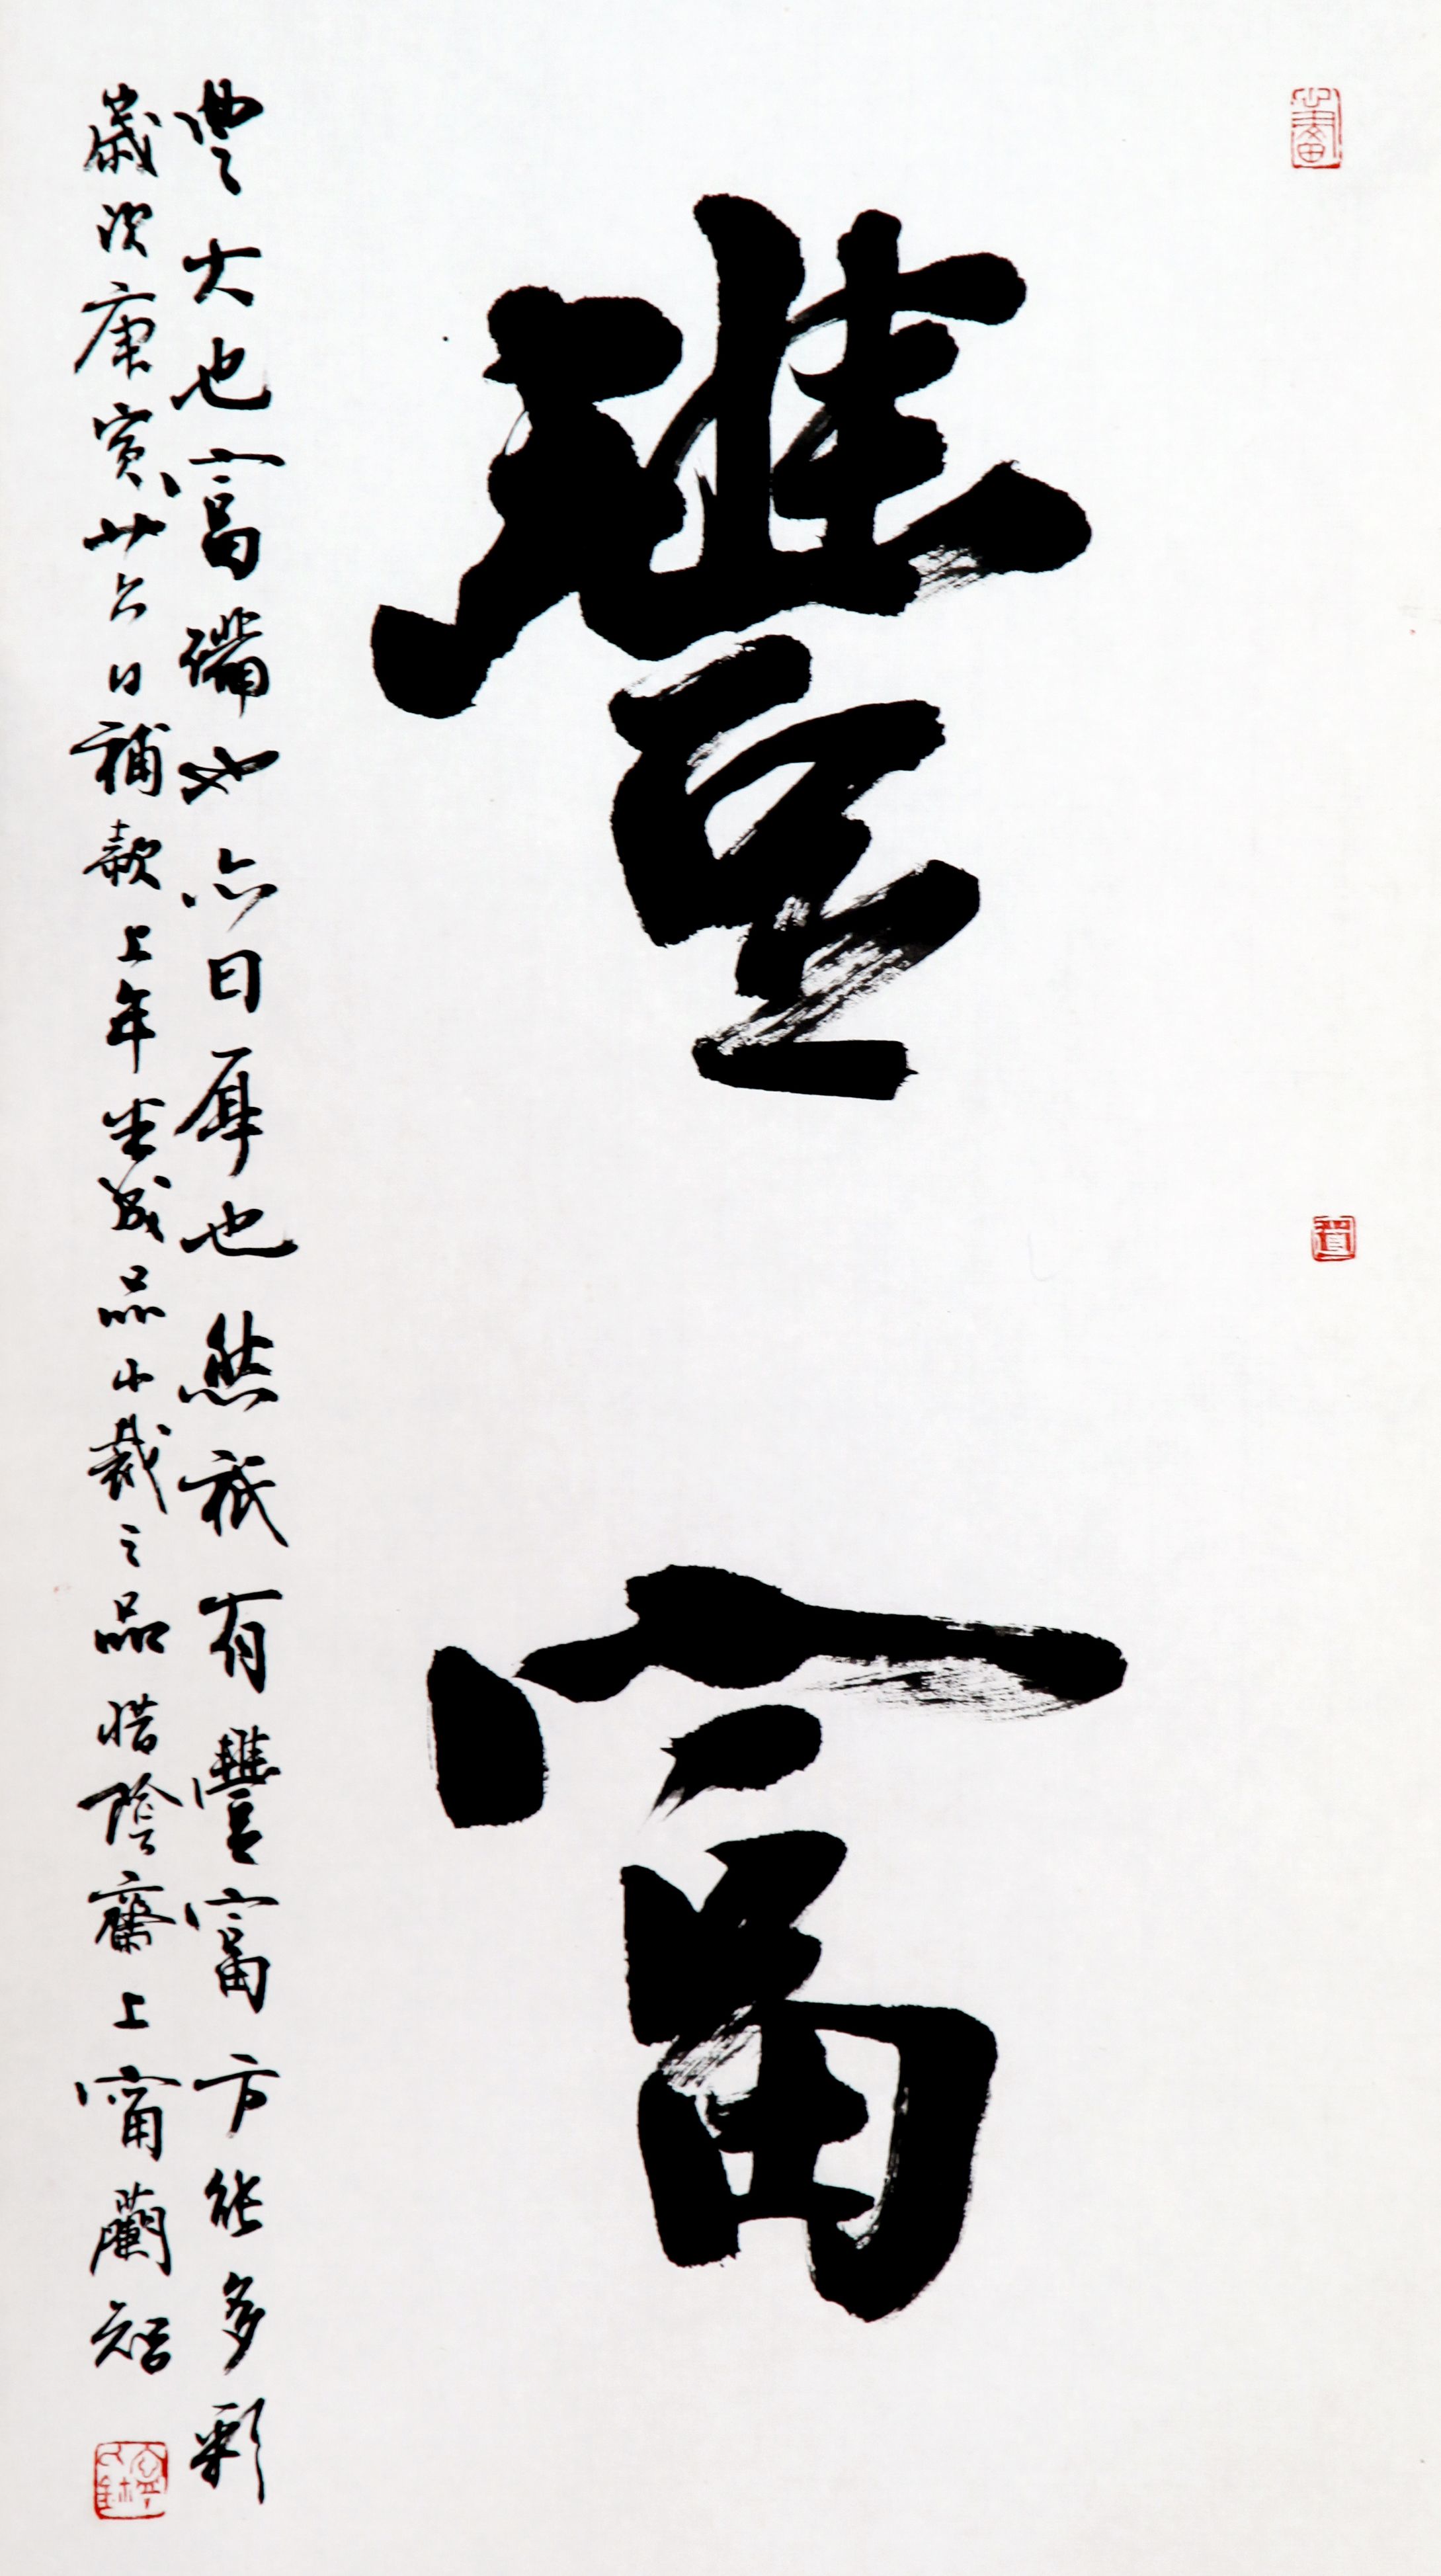 豐富
豐大也富備也亦曰厚也然祇有豐富方能多彩
歲次庚寅廿六日補款上年坐成品小裁之品惜陰齋上甯蘭智